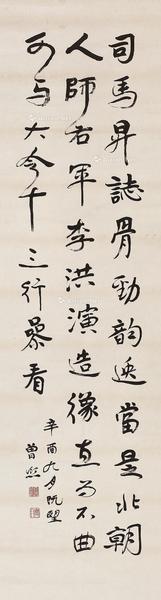 司馬昇誌骨勁韵逸當是北朝
人師右軍李洪演造像直而不曲
可与大令十三行參看
辛酉九月既望
曾熙